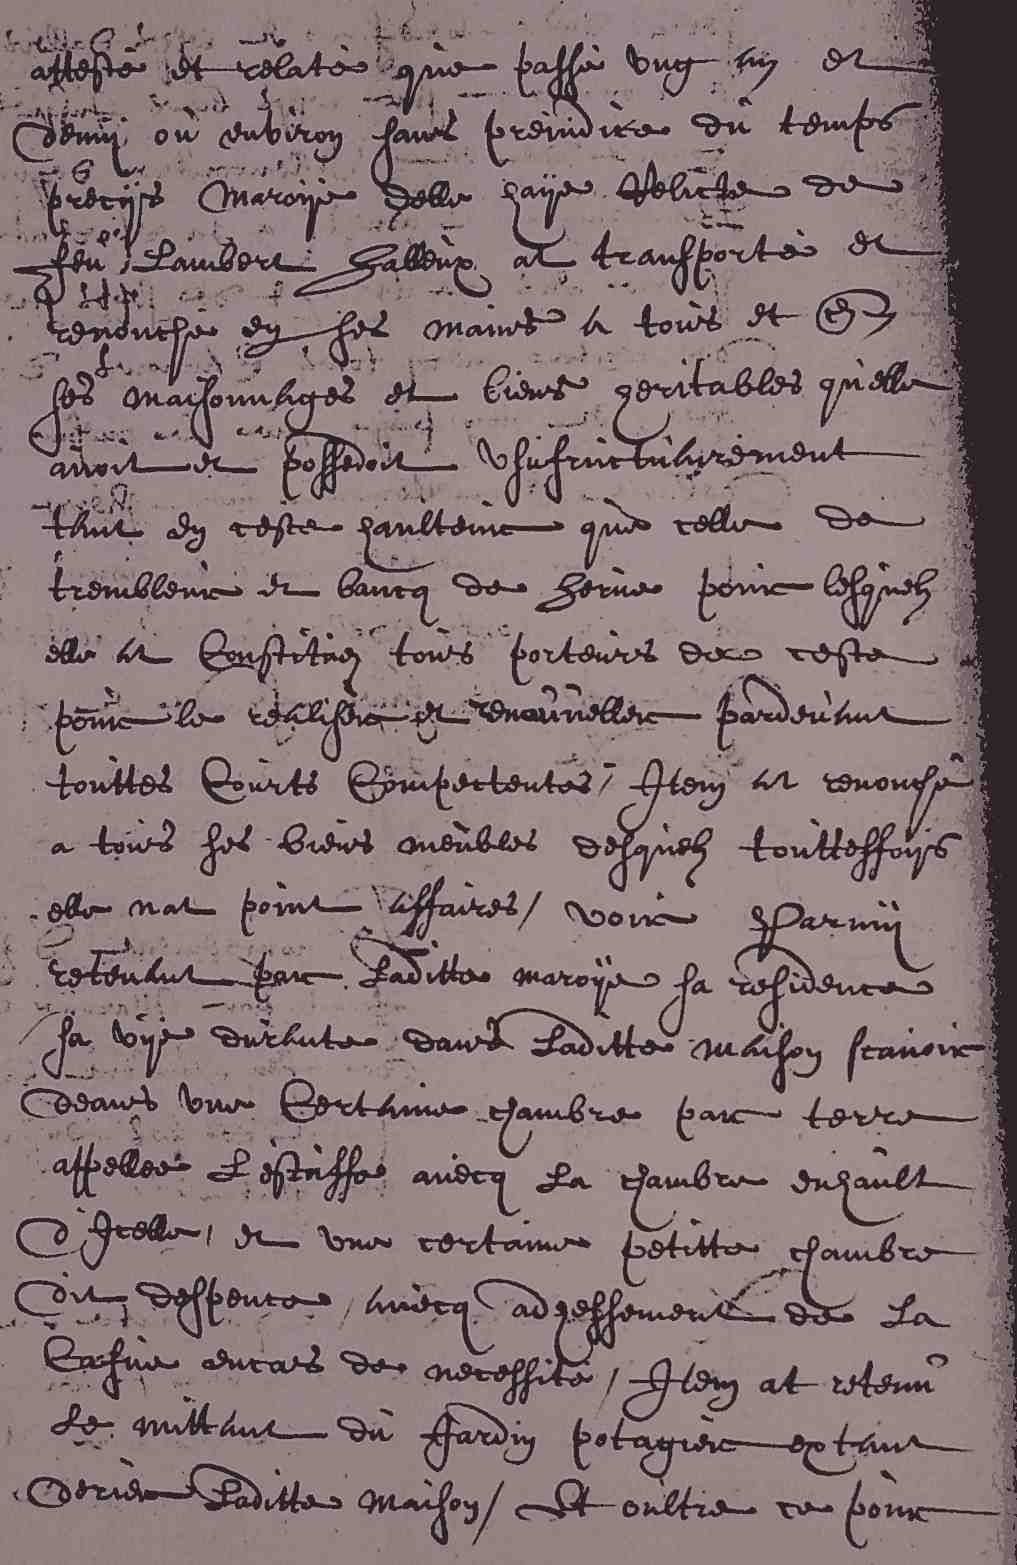 attesté et relaté que passé ung an et
demij ou environ sans preiudice du temps
precijs Maroije delle haije Relicte de
feu Lambert Halleux at transporté et
renonché en ses mains a tous et
ses maisonnages et biens heritables qu'elle
avoit et possedoit usufructuairement
tant en ceste haulteur que celle de
trembleur et bancq de Herve pour lesquelz
elle at Constitué tous porteurs de ceste
pour le realiser et renouveller pardevant
touttes Courts Competentes / Item at renonché
a tous ses biens meubles desquelz touttesfoijs
elle nat point affaires / voir Parmij
retenant par Laditte maroije sa residence
sa vije durante dans Laditte maison scavoir
deans une Certaine chambre par terre
appellee L'estuffe avecq La chambre enhault
d'Icelle, et une certaine petitte chambre
dit despence, avecq adhessement de La
en cas de necessité / Item at retenu
Le mittant du Jardin potagier extant
derier Laditte Maison / Et oultre ce pour